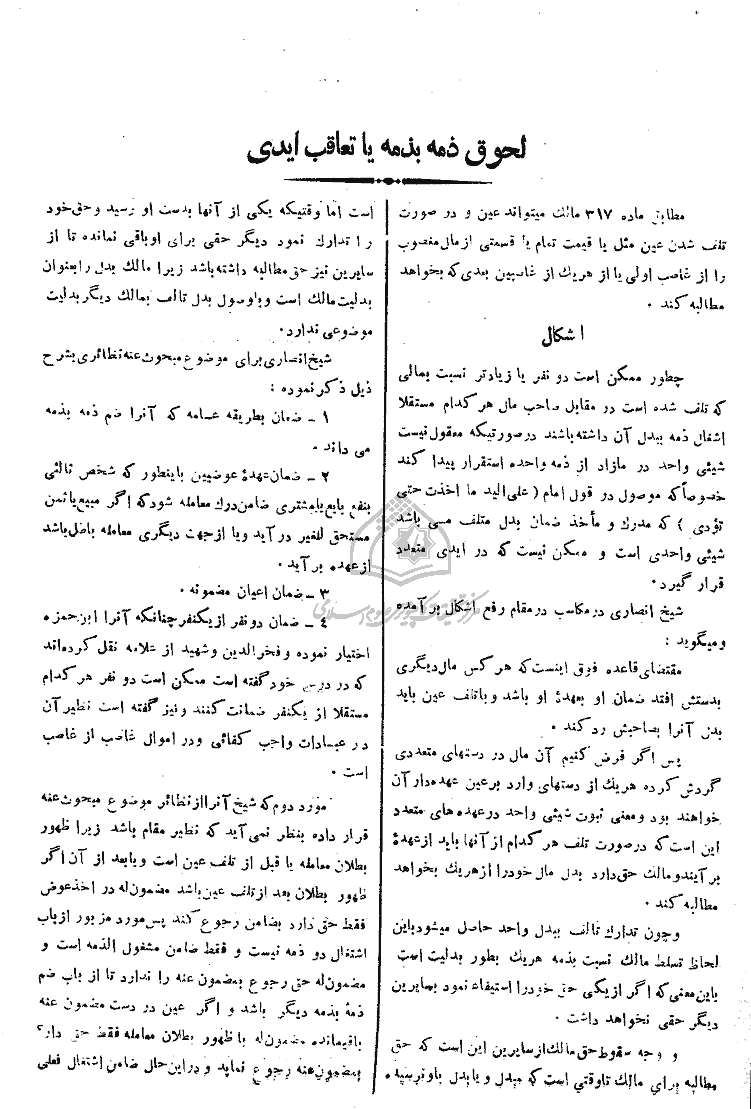 لحوق ذمه بذمه یا تعاقب ایدی
مطابق ماده ۳۱۷ مالك میتواند عین و در صورت
تلف شدن عین مثل یا قیمت تمام یا قسمتی از مال مغصوب
را از غاصب اولی یا از هریك از غاصبین بعدی که بخواهد
مطالبه کند .
اشکال
چطور ممکن است دو نفر یا زیادتر نسبت بمالی
که تلف شده است در مقابل صاحب مال هر کدام مستقلا
اشغال ذمه ببدل آن داشته باشند در صورتیکه معقول نیست
شیئی واحد در مازاد از ذمه واحده استقرار پیدا کند
خصوصاً که موصول در قول امام ( علی الید ما اخذت حتی
تؤدی ) که مدرك و مأخذ ضمان بدل متلف می باشد
شیئی واحدی است و ممکن نیست که در ایدی متعدد
قرار گیرد.
شیخ انصاری در مکاسب در مقام رفع اشکال بر آمده
و میگوید :
مقتضای قاعده فوق اینست که هر کس مال دیگری
بدستش افتد ضمان او بعهدهٔ او باشد و با تلف عین باید
بدن آنرا بصاحبش رد کند .
پس اگر فرض کنیم آن مال در دستهای متعددی
گردش کرده هریك از دستهای وارد بر عین عهده دار آن
خواهند بود و معنی ثبوت شیئی واحد در عهده های متعدد
این است که در صورت تلف هر کدام از آنها باید از عهدهٔ
بر آیند و مالك حق دارد بدل مال خود را از هریك بخواهد
مطالبه کند .
و چون تدارك تالف ببدل واحد حاصل میشود باین
لحاظ تسلط مالك نسبت بذمه هریك بطور بدلیت است
باین معنی که اگر از یکی حق خود را استیفاء نمود بسایرین
دیگر حقی نخواهد داشت .
و وجه سقوط حق مالك از سایرین این است که حق
مطالبه برای مالك تا وقتی است که مبدل و یا بدل باو نرسیده
است اما وقتیکه یکی از آنها بدست او رسید و حق خود
را تدارك نمود دیگر حقی برای او باقی نمانده تا از
سایرین نیز حق مطالبه داشته باشد زیرا مالك بدل را بعنوان
بدلیت مالك است و با وصول بدل تالف بمالك دیگر بدلیت
موضوعی ندارد.
شیخ انصاری برای موضوع مبحوث عنه نظائری بشرح
ذیل ذکر نموده :
۱ ـ ضمان بطریقه عامه که آنرا ضم ذمه بذمه
می داند .
۲ ـ ضمان عهدهٔ عوضیین باینطور که شخص ثالثی
بنفع بایع یا مشتری ضامن درك معامله شود که اگر مبیع یا ثمن
مستحق للغیر در آید و یا از جهت دیگری معامله باطل باشد
از عهده بر آید .
۳ ـ ضمان اعیان مضمونه .
٤ ـ ضمان دو نفر از یکنفر چنانکه آنرا ابن حمزه
اختیار نموده و فخر الدین و شهید از علامه نقل کرده اند
که در درس خود گفته است ممکن است دو نفر هر کدام
مستقلا از یکنفر ضمانت کنند و نیز گفته است نظیر آن
در عبادات واجب کفائی و در اموال غاصب از غاصب
است .
مورد دوم که شیخ آنرا از نظائر موضوع مبحوث عنه
قرار داده بنظر نمی آید که نظیر مقام باشد زیرا ظهور
بطلان معامله یا قبل از تلف عین است و یا بعد از آن اگر
ظهور بطلان بعد از تلف عین باشد مضمون له در اخذ عوض
فقط حق دارد بضامن رجوع کند پس مورد مزبور از باب
اشتغال دو ذمه نیست و فقط ضامن مشغول الذمه است و
مضمون له حق رجوع بمضمون عنه را ندارد تا از باب ضم
ذمهٔ بذمه دیگر باشد و اگر عین در دست مضمون عنه
باقیمانده مضمون له با ظهور بطلان معامله فقط حق دارد
بمضمون عنه رجوع نماید و در این حال ضامن اشتغال فعلی